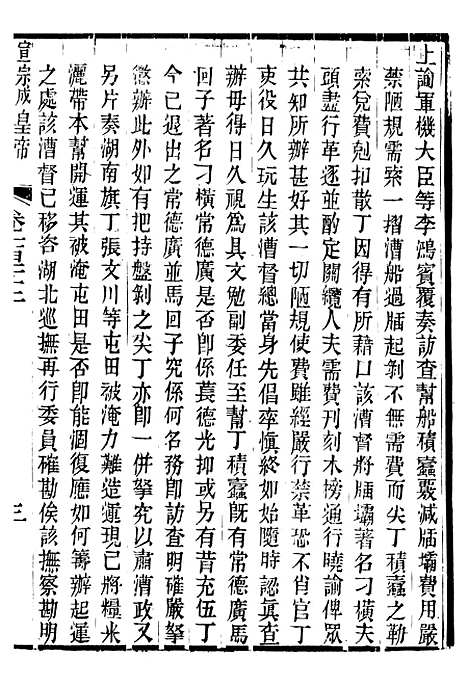 上諭軍機大臣等李鴻賓覆奏訪查幫船積蠹覈減牐壩費用嚴
禁陋規需索一摺漕船過牐起剝不無需費而尖丁積蠹之勒
索兌費剋扣散丁實有所藉口該漕督將牐壩著名刁橫夫
頭盡行革逐並酌定關纜人夫需費刊刻木榜通行曉諭俾眾
共知所辦甚是其一切陋規使費雖經嚴行禁革恐不肖官丁
吏役日久玩生該漕督總當身先倡率慎終如始隨時認眞查
辦毋得日久視爲具文勉副委任至幫丁積蠹旣有常德廣馬
回子著名刁橫常德廣是否卽係蓂德光抑或另有昔充伍丁
今已退出之常德廣並馬回子究係何名務卽訪查明確嚴拏
懲辦此外如有把持盤剝之尖丁亦卽一併拏究以肅漕政又
另片奏湖南旗丁張文川等屯田被淹力難造運現已將糧米
灑帶本幫開運其被淹屯田是否卽能涸復應如何籌辦起運
之處該漕督已移咨湖北巡撫再行委員確勘俟該撫察勘明
宣宗成皇帝 卷一百三十三 三